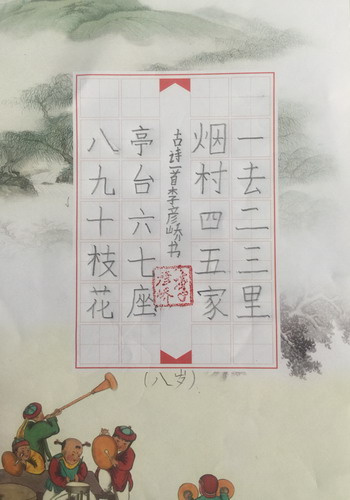 一去二三里
烟村四五家
古诗一首李彦峤书
亭台六七座
八九十枝花
(八岁)